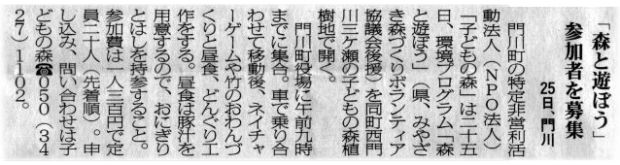 「森と遊ぼう」
参加者を募集
25日、門川
門川町の特定非営利活
動法人（NPO法人）
「子どもの森」は二十五
日、環境プログラム「森
と遊ぼう」（県、みやざ
き森づくりボランティア
協議会後援）を同町西門
川三ケ瀬の子どもの森植
樹地で開く。
門川町役場に午前九時
までに集合。車で乗り合
わせて移動後、ネイチャ
ーゲームや竹のおわんづ
くりと昼食、どんぐり工
作をする。昼食は豚汁を
用意するので、おにぎり
とはしを持参すること。
参加費は一人三百円で定
員二十人（先着順）。申
し込み、問い合わせは子
どもの森☎050（34
27）1102。